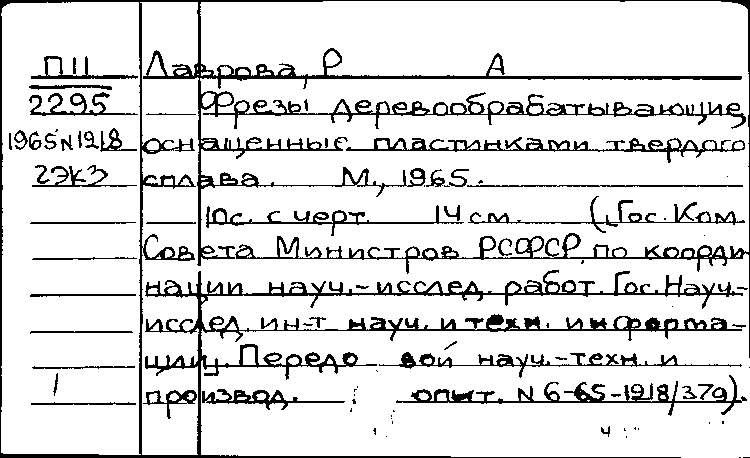 П11 Лаврова, Р А
2295 Фрезы деревообрабатывающие,
1965 N 1218 оснащенные пластинками твердого
2 экз сплава. М., 1965.
10с. с черт. 14 см. (Гос. Ком.
Совета Министров РСФСР по коорди
нации науч.-исслед. работ. Гос. Науч.-
исслед. ин-т науч. и техн. информа-
ции. Передовой науч.-техн. и
1 производ. опыт. N 6-65-1218/379).